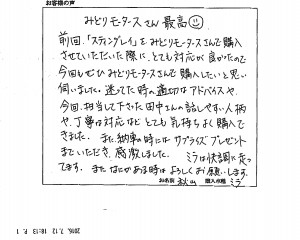 お客様の声
みどりモータースさん 最高
前回、「スティングレイ」をみどりモータースさんで購入
させていただいた際に、とても対応が良かったので
今回もぜひみどりモータースで購入したいと思い
伺いました。迷ってた時の適切なアドバイスや、
今回、担当して下さった田中さんの話しやすい人柄
や、丁寧な対応など とても気持ちよく購入で
きました。また納車の時にはサプライズプレゼント
までいただき、感激しました。ミラは快調に走っ
てます。またなにかある時はよろしくお願いします。
お名前 秋山 購入車種 ミラ
2016. 7.12 18:13 P. 1